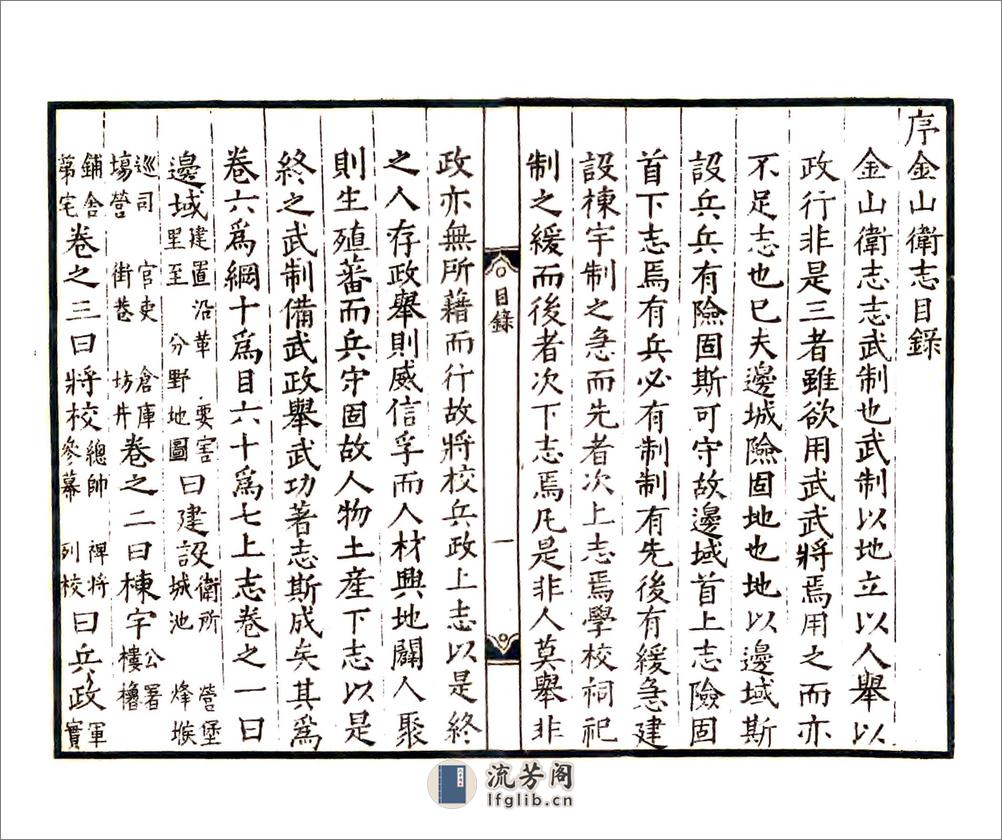 序金山衛志目錄
金山衛志志武制也武制以地立以人舉以
政行非是三者雖欲用武武將焉用之而亦
不足志也已夫邊城險固地也地以邊域斯
設兵兵有險固斯可守故邊域首上志險固
首下志焉有兵必有制制有先後有緩急建
設棟宇制之急而先者次上志焉學校祠祀
制之緩而後者次下志焉凡是非人莫舉非
目錄 一
政亦無所藉而行故將校兵政上志以是終
之人存政舉則威信孚而人材興地闢人聚
則生殖蕃而兵守固故人物土產下志以是
終之武制備武政舉武功著志斯成矣其爲
卷六爲綱十爲目六十爲七上志卷之一曰
邊域建置沿革 要害里至 分野地圖曰建設衛所 營堡城池 烽堠
巡司 官吏 倉庫塲營 街巷 坊井卷之二曰棟宇公署樓櫓
鋪舍第宅卷之三曰將校總帥 裨將參幕 列校曰兵政軍實
流芳阁
lfglib.cn